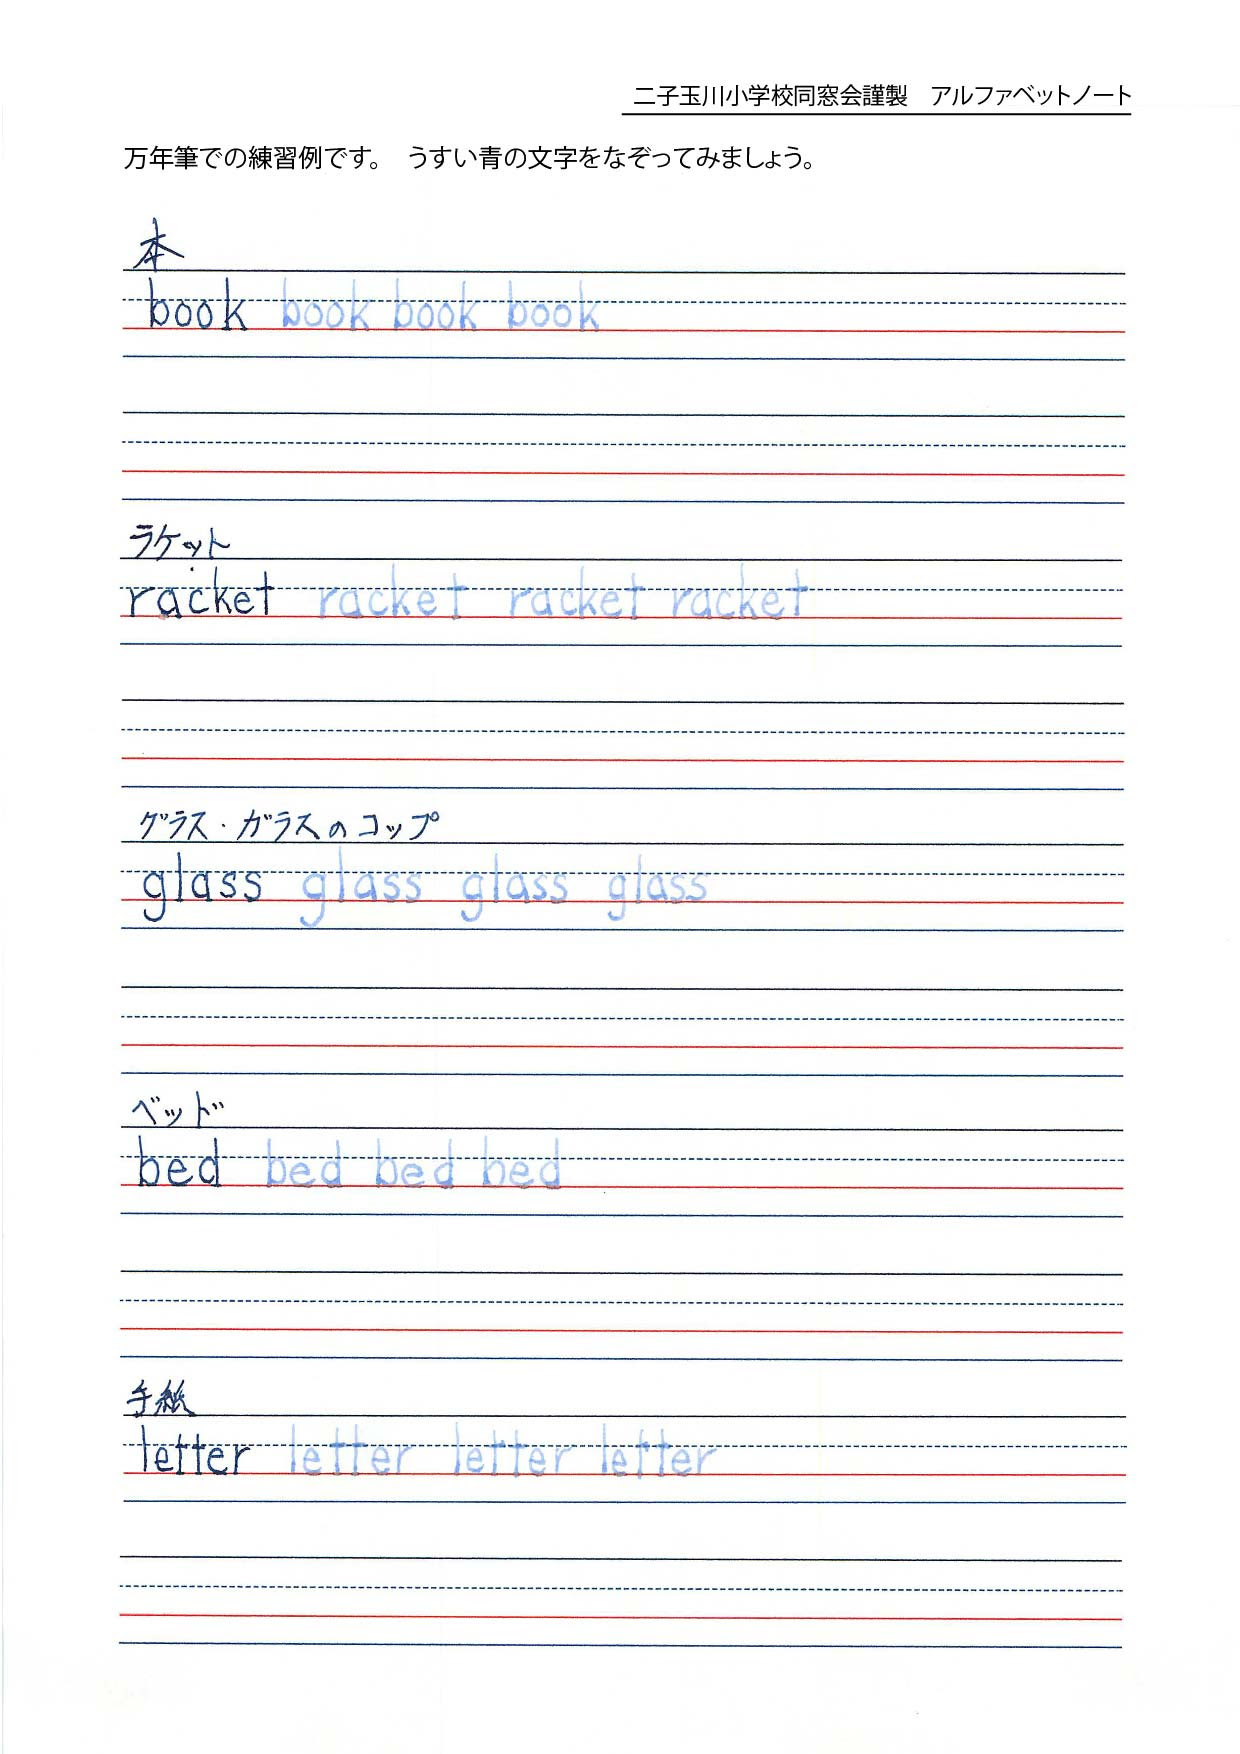 二子玉川小学校同窓会謹製　アルファベットノート
万年筆での練習例です。　うすい青の文字をなぞってみましょう。
本
book book book book
ラケット
racket racket racket racket
グラス・ガラスのコップ
glass glass glass glass
ベッド
bed bed bed bed
手紙
letter letter letter letter